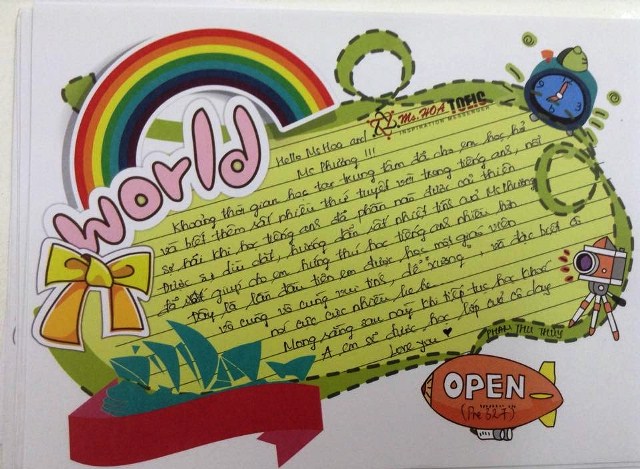 world
Ms. HOA TOEIC
INSPIRATION MESSENGER
Hello Ms Hoa and
Ms Phương !!!
Khoảng thời gian học tại trung tâm đã cho em học hỏi
và biết thêm rất nhiều thứ tuyệt vời trong tiếng anh, nỗi
sợ hãi khi học tiếng anh đã phần nào được cải thiện
Được sự dìu dắt, hướng dẫn rất nhiệt tình của Ms Phương
đã giúp cho em hứng thú học tiếng anh nhiều hơn
Đây là lần đầu tiên em được học một giáo viên
vô cùng vô cùng vui tính, dễ thương, và đặc biệt là
nói cực cực nhiều he he
Mong rằng sau này khi tiếp tục học khoá
A em sẽ được học lớp của cô dạy
love you ♥
PHAN THU THỦY
OPEN
(Pre 527)